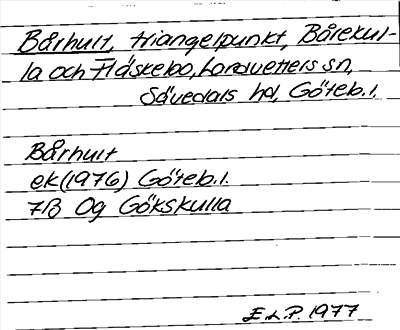 Bårhult, triangelpunkt, Bårekul-
la och Fläskebo, Landvetters sn,
Sävedals hd, Göteb. l.
Bårhult
ek(1976) Göteb. l.
7B Og Gökskulla
E.L.P. 1977